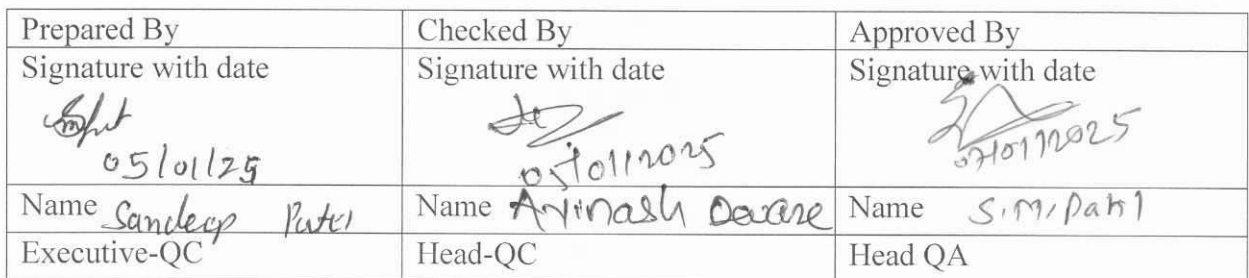 Prepared By Checked By Approved By
Signature with date Signature with date Signature with date
05/01/25 05/01/2025 07/01/2025
Name Sandeep Patil Name Avinash Deware Name S.M. Patil
Executive-QC Head-QC Head QA